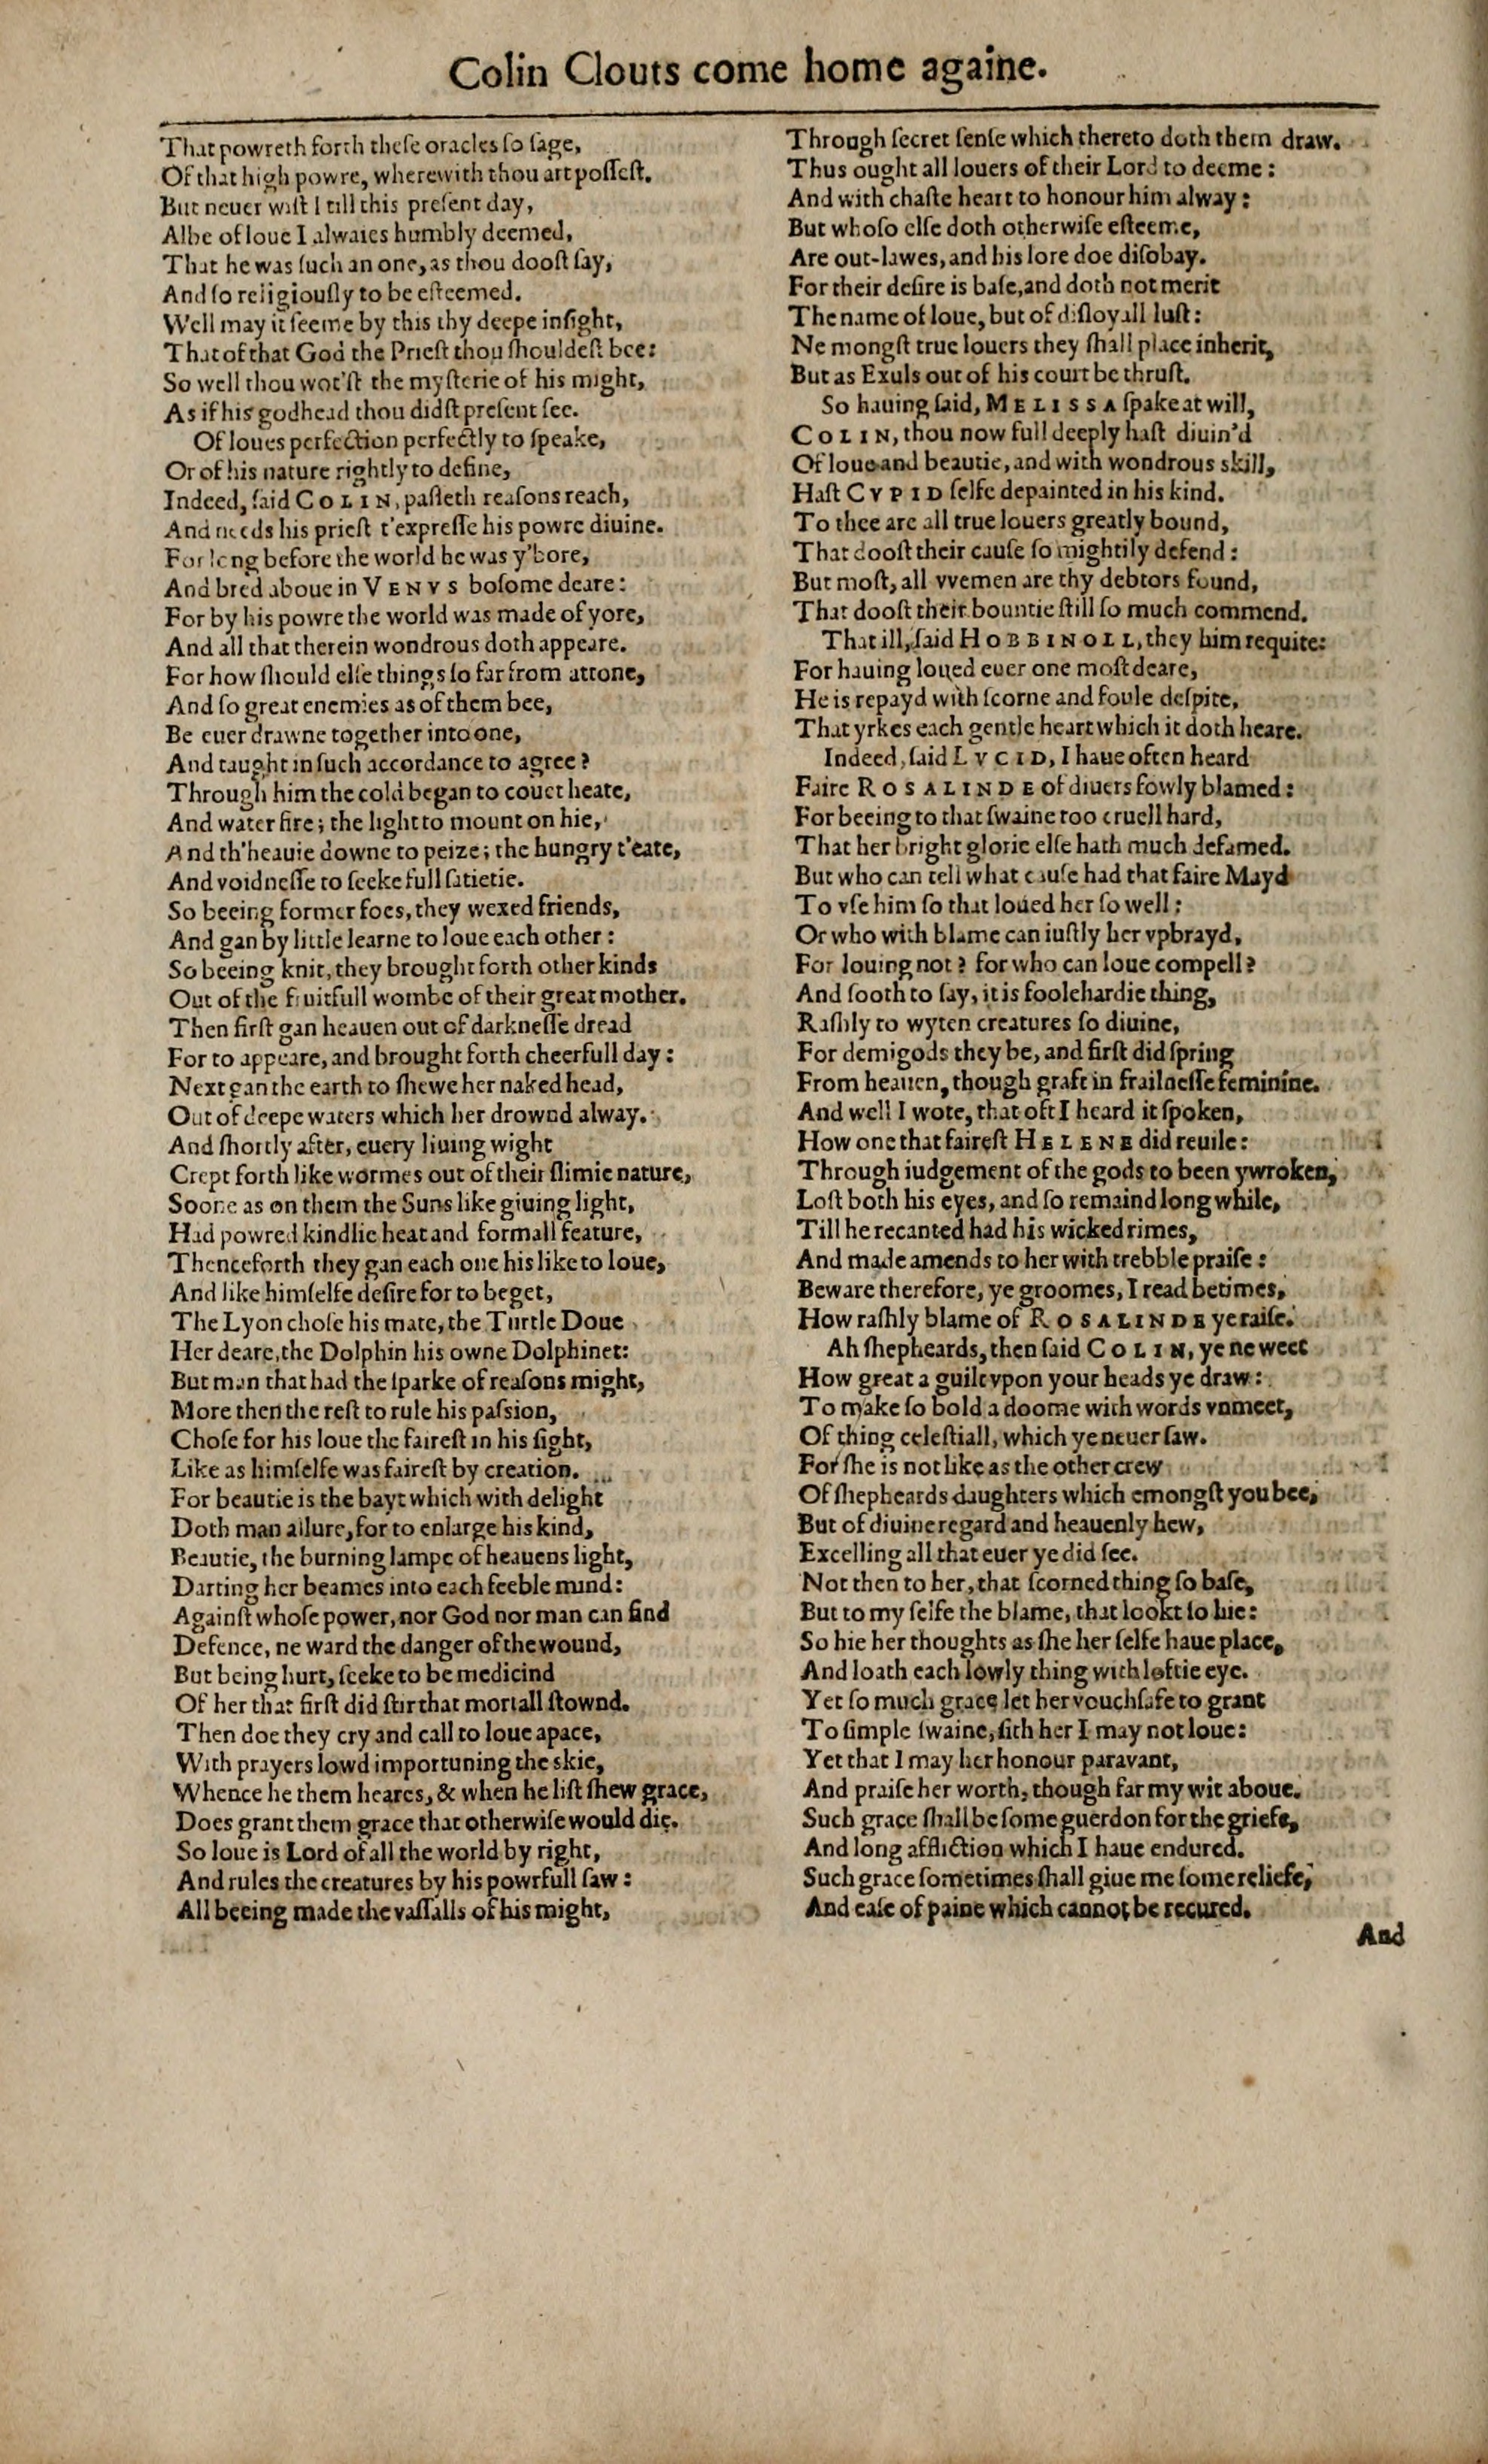 Colin Clouts come home againe.
That powreth forth theſe oracles ſo ſage,
Of that high powre, wherewith thou art poſſeſt.
But neuer wiſt I till this preſent day,
Albe of loue I alwaies humbly deemed,
That he was ſuch an one, as thou dooſt ſay,
And ſo religiouſly to be eſteemed.
Well may it ſeeme by this thy deepe inſight,
That of that God the Prieſt thou ſhouldeſt bee:
So well thou wot'ſt the myſterie of his might,
As if his godhead thou didſt preſent ſee.
Of loues perfection perfectly to ſpeake,
Or of his nature rightly to define,
Indeed, ſaid COLIN, paſſeth reaſons reach,
And needs his prieſt t'expreſſe his powre diuine.
For long before the world he was y'bore,
And bred aboue in VENVS boſome deare:
For by his powre the world was made of yore,
And all that therein wondrous doth appeare.
For how ſhould elſe things ſo far from attone,
And ſo great enemies as of them bee,
Be euer drawne together into one,
And taught in ſuch accordance to agree?
Through him the cold began to couet heate,
And water fire; the light to mount on hie,
And th'heauie downe to peize; the hungry t'eate,
And voidneſſe to ſeeke full ſatietie.
So beeing former foes, they wexed friends,
And gan by little learne to loue each other:
So beeing knit, they brought forth other kinds
Out of the fruitfull wombe of their great mother.
Then firſt gan heauen out of darkneſſe dread
For to appeare, and brought forth cheerfull day:
Next gan the earth to ſhewe her naked head,
Out of deepe waters which her drownd alway.
And ſhortly after, euery liuing wight
Crept forth like wormes out of their ſlimie nature,
Soone as on them the Suns like giuing light,
Had powred kindlie heat and formall feature,
Thenceforth they gan each one his like to loue,
And like himſelfe deſire for to beget,
The Lyon choſe his mate, the Turtle Doue
Her deare, the Dolphin his owne Dolphinet:
But man that had the ſparke of reaſons might,
More then the reſt to rule his paſsion,
Choſe for his loue the faireſt in his ſight,
Like as himſelfe was faireſt by creation.
For beautie is the bayt which with delight
Doth man allure, for to enlarge his kind,
Beautie, the burning lampe of heauens light,
Darting her beames into each feeble mind:
Againſt whoſe power, nor God nor man can find
Defence, ne ward the danger of the wound,
But being hurt, ſeeke to be medicind
Of her that firſt did ſtir that mortall ſtownd.
Then doe they cry and call to loue apace,
With prayers lowd importuning the skie,
Whence he them heares, & when he liſt ſhew grace,
Does grant them grace that otherwiſe would die.
So loue is Lord of all the world by right,
And rules the creatures by his powrfull ſaw:
All beeing made the vaſſalls of his might,
Through ſecret ſenſe which thereto doth them draw.
Thus ought all louers of their Lord to deeme:
And with chaſte heart to honour him alway:
But whoſo elſe doth otherwiſe eſteeme,
Are out-lawes, and his lore doe diſobay.
For their deſire is baſe, and doth not merit
The name of loue, but of diſloyall luſt:
Ne mongſt true louers they ſhall place inherit,
But as Exuls out of his court be thruſt.
So hauing ſaid, MELISSA ſpake at will,
COLIN, thou now full deeply haſt diuin'd
Of loue and beautie, and with wondrous skill,
Haſt CVPID ſelfe depainted in his kind.
To thee are all true louers greatly bound,
That dooſt their cauſe ſo mightily defend:
But moſt, all vvemen are thy debtors found,
That dooſt their bountie ſtill ſo much commend.
That ill, ſaid HOBBINOLL, they him requite:
For hauing loued euer one moſt deare,
He is repayd with ſcorne and foule deſpite,
That yrkes each gentle heart which it doth heare.
Indeed, ſaid LVCID, I haue often heard
Faire ROSALINDE of diuers fowly blamed:
For beeing to that ſwaine too cruell hard,
That her bright glorie elſe hath much defamed.
But who can tell what cauſe had that faire Mayd
To vſe him ſo that loued her ſo well:
Or who with blame can iuſtly her vpbrayd,
For louing not? for who can loue compell?
And ſooth to ſay, it is foolehardie thing,
Raſhly to wyten creatures ſo diuine,
For demigods they be, and firſt did ſpring
From heauen, though graft in frailneſſe feminine.
And well I wote, that oft I heard it ſpoken,
How one that faireſt HELENE did reuile:
Through iudgement of the gods to been ywroken,
Loſt both his eyes, and ſo remaind long while,
Till he recanted had his wicked rimes,
And made amends to her with trebble praiſe:
Beware therefore, ye groomes, I read betimes,
How raſhly blame of ROSALINDE ye raiſe.
Ah ſhepheards, then ſaid COLIN, ye ne weet
How great a guilt vpon your heads ye draw:
To make ſo bold a doome with words vnmeet,
Of thing celeſtiall, which ye neuer ſaw.
For ſhe is not like as the other crew
Of ſhepheards daughters which emongſt you bee,
But of diuine regard and heauenly hew,
Excelling all that euer ye did ſee.
Not then to her, that ſcorned thing ſo baſe,
But to my ſelfe the blame, that lookt ſo hie:
So hie her thoughts as ſhe her ſelfe haue place,
And loath each lowly thing with loftie eye.
Yet ſo much grace let her vouchſafe to grant
To ſimple ſwaine, ſith her I may not loue:
Yet that I may her honour paravant,
And praiſe her worth, though far my wit aboue.
Such grace ſhall be ſome guerdon for the griefe,
And long affliction which I haue endured.
Such grace ſometimes ſhall giue me ſome reliefe,
And eaſe of paine which cannot be recured.
And